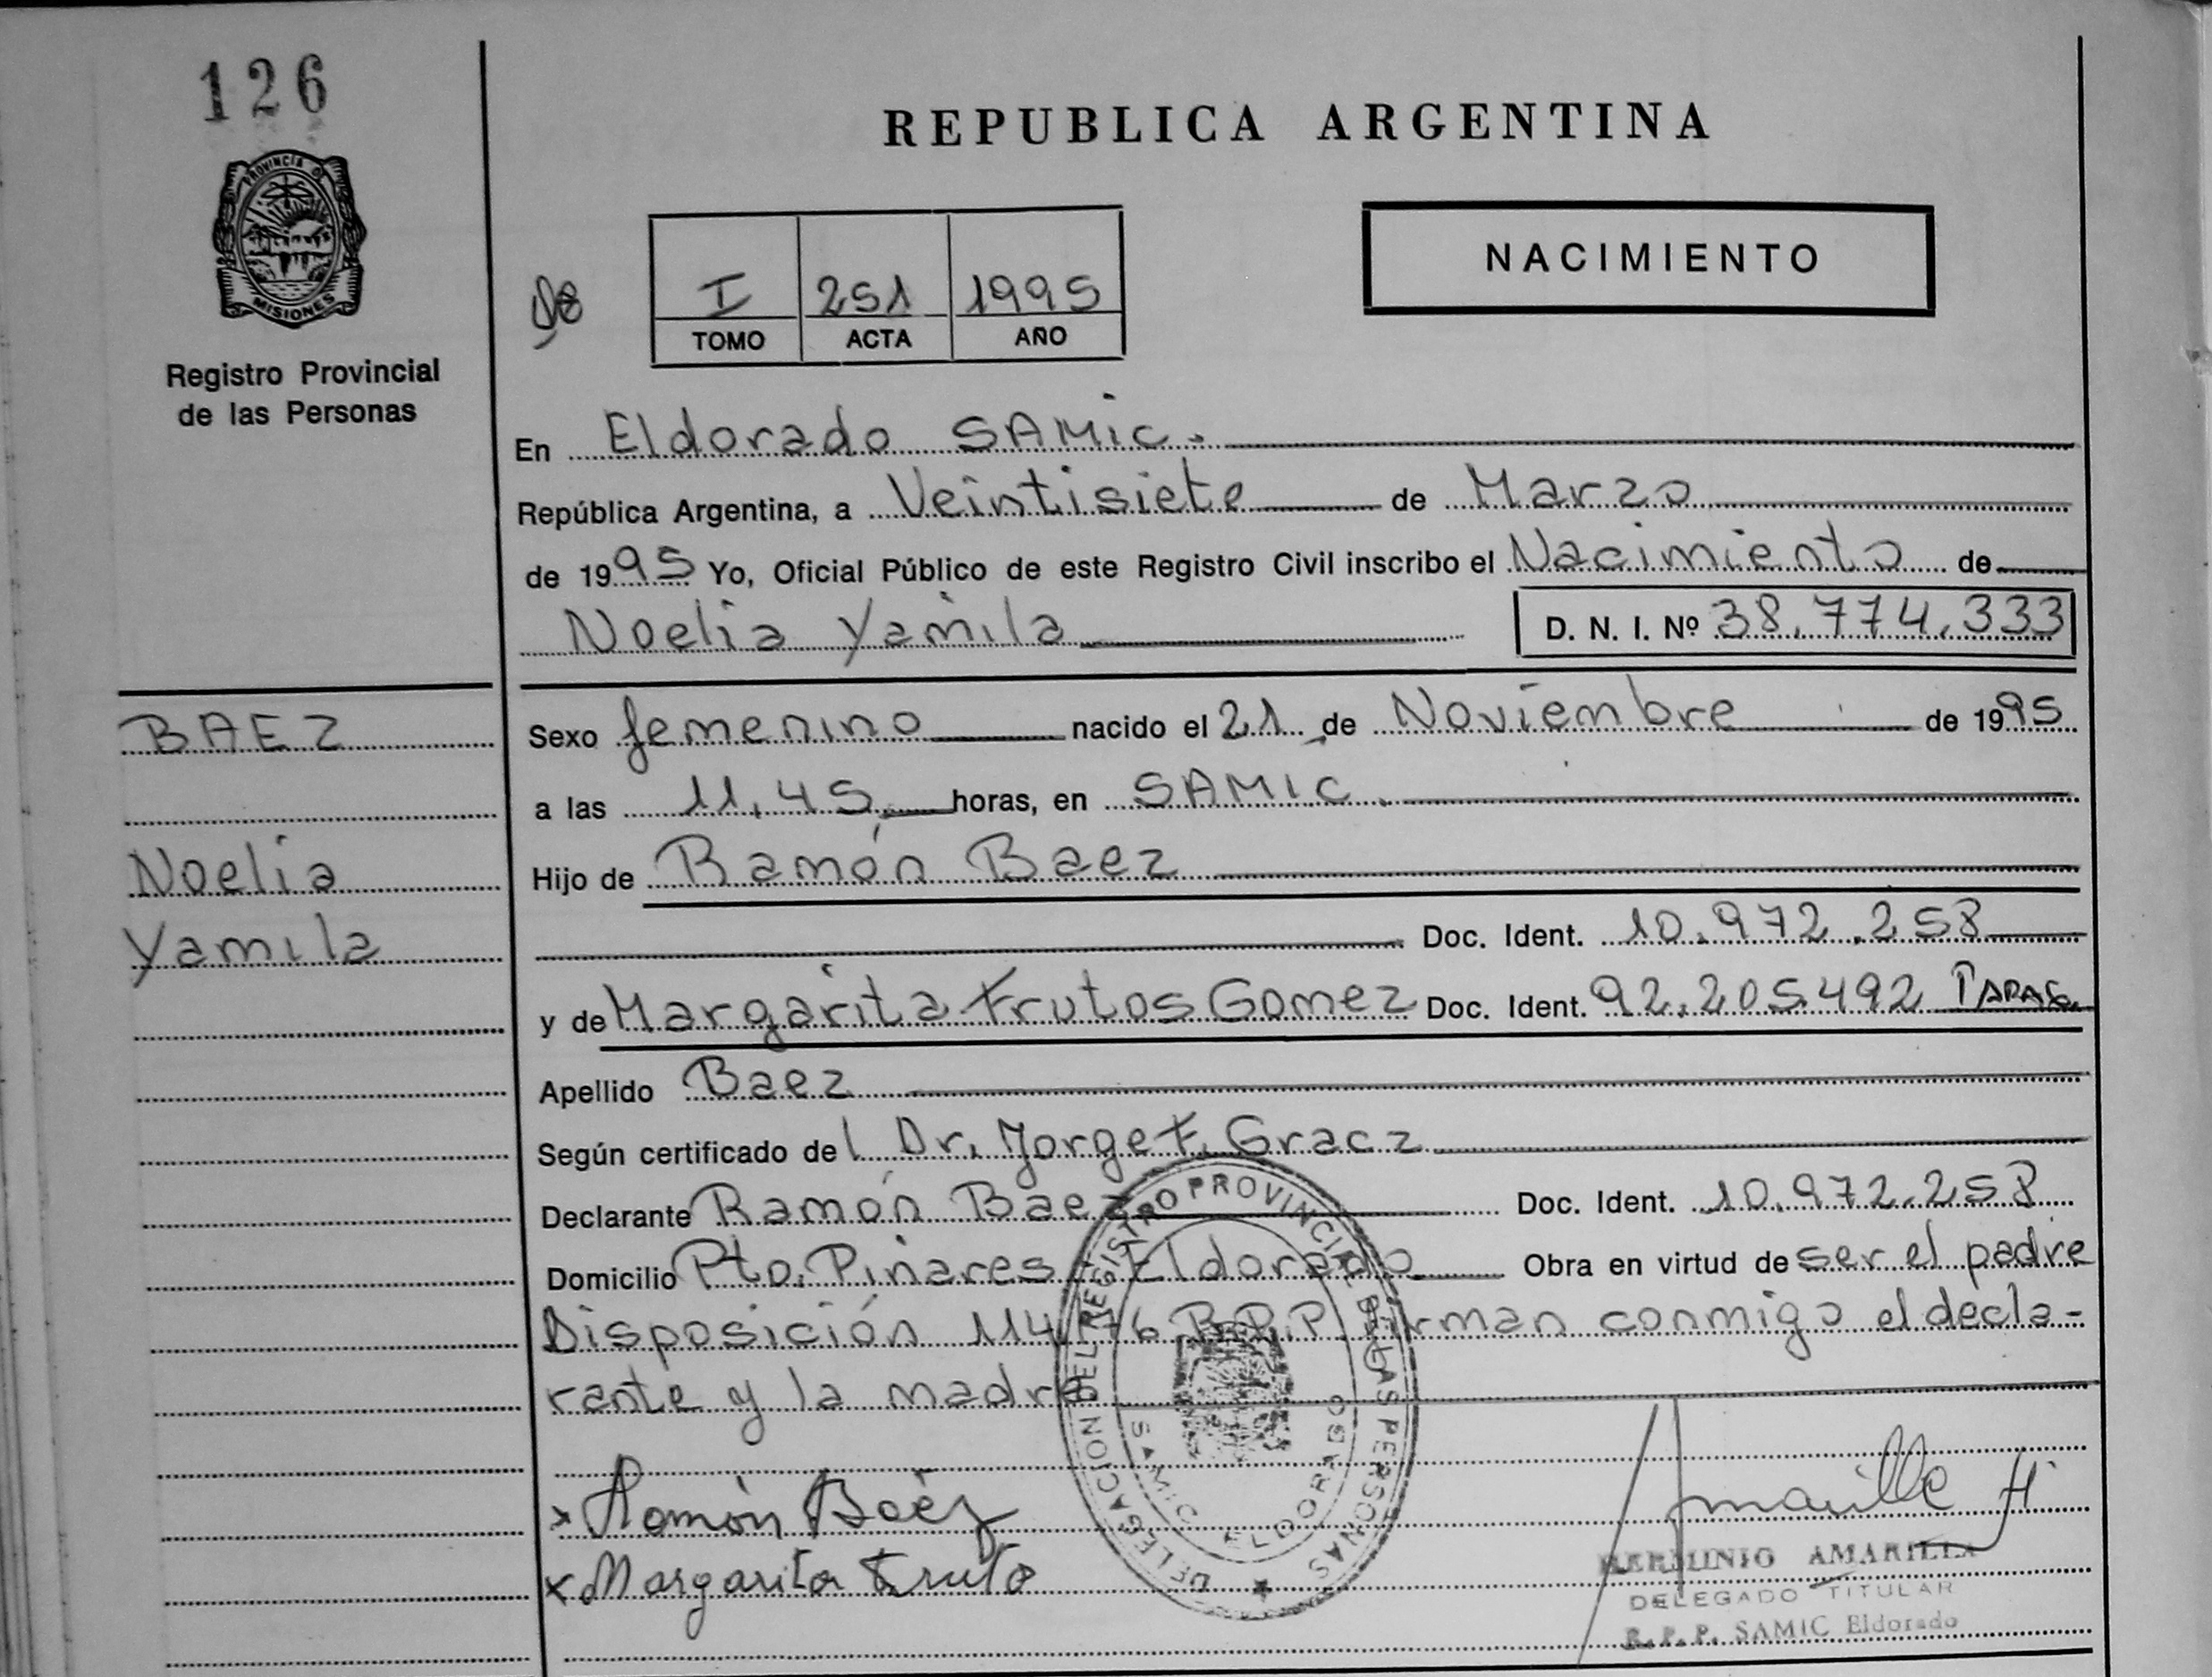 126
REPUBLICA ARGENTINA
PROVINCIA D
MISIONES
Registro Provincial
de las Personas
I 251 1995
TOMO ACTA AÑO
NACIMIENTO
En Eldorado SAMic.
República Argentina, a Veintisiete de Marzo
de 1995 Yo, Oficial Público de este Registro Civil inscribo el Nacimiento de
Noelia Yamila D. N. I. Nº 38.774.333
BAEZ
Noelia
Yamila
Sexo femenino nacido el 21 de Noviembre de 1995
a las 11,45 horas, en SAMIC.
Hijo de Ramón Baez
Doc. Ident. 10.972.258
y de Margarita Frutos Gomez Doc. Ident. 92.205.492
Apellido Baez
Según certificado del Dr. Jorge F. Gracz
Declarante Ramón Baez Doc. Ident. 10.972.258
Domicilio Pto. Pinares Eldorado Obra en virtud de ser el padre
Disposición 114/76 R.P.P. firman conmigo el decla-
rante y la madre
DELEGACION DEL REGISTRO PROVINCIAL DE LAS PERSONAS
SAMIC ELDORADO
x Ramón Baéz
x Margarita Fruto
Amarilla H
HERMINIO AMARILLA
DELEGADO TITULAR
R. P. P. SAMIC Eldorado